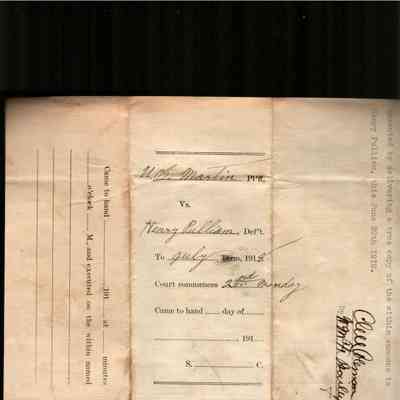 W. G. Martin Pl'ff,
Vs.
Henry Pulliam, Def't.
To July Term, 191
Court commences 2nd Monday
Came to hand day of
191
S. C.
Came to hand 191 at minutes
o'clock M., and executed on the within named
executed by delivering a true copy of the within summons to
Henry Pulliam, this June 20th 1912.
By